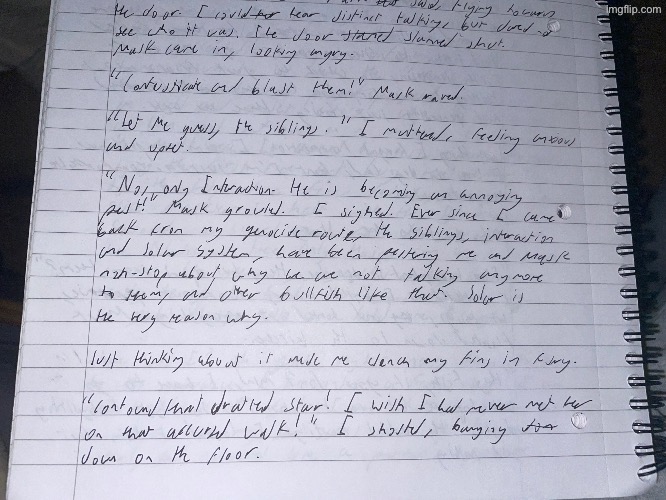 imgflip.com
said, flying towards
the door. I could hear distinct talking, but dared not
see who it was. The door slammed shut.
Mask came in, looking angry.
"Confusticate and blast them!" Mask raved.
"Let me guess, the siblings." I muttered, feeling anxious
and upset.
"No, only Interaction. He is becoming an annoying
pest!" Mask growled. I sighed. Ever since I came
back from my genocide route, the siblings, interaction
and solar system, have been pestering me and Mask
non-stop about why we are not talking anymore
to them, and other bullfish like that. Solar is
the very reason why.
Just thinking about it made me clench my fins in fury.
"Confound that dratted star! I wish I had never met her
on that accursed walk!" I shouted, banging
down on the floor.